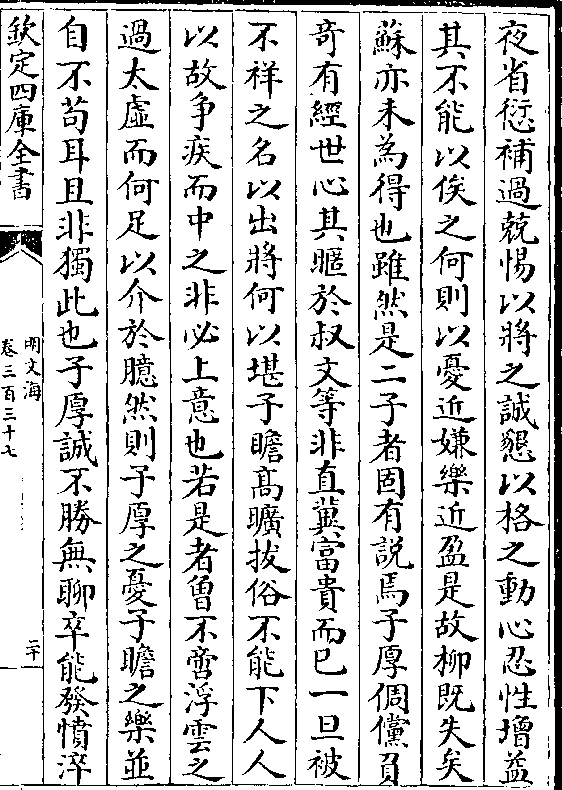 夜省愆補過兢惕以將之誠懇以格之動心忍性增益
其不能以俟之何則以憂近嫌樂近盈是故柳既失矣
蘇亦未為得也雖然是二子者固有說焉子厚倜儻負
奇有經世心其暱於叔文等非直冀富貴而已一旦被
不祥之名以出將何以堪子瞻髙曠拔俗不能下人人
以故争疾而中之非必上意也若是者曽不啻浮雲之
過太虛而何足以介於臆然則子厚之憂子瞻之樂並
自不苟耳且非獨此也子厚誠不勝無聊卒能發憤淬
欽定四庫全書
明文海
卷三百三十七
二十